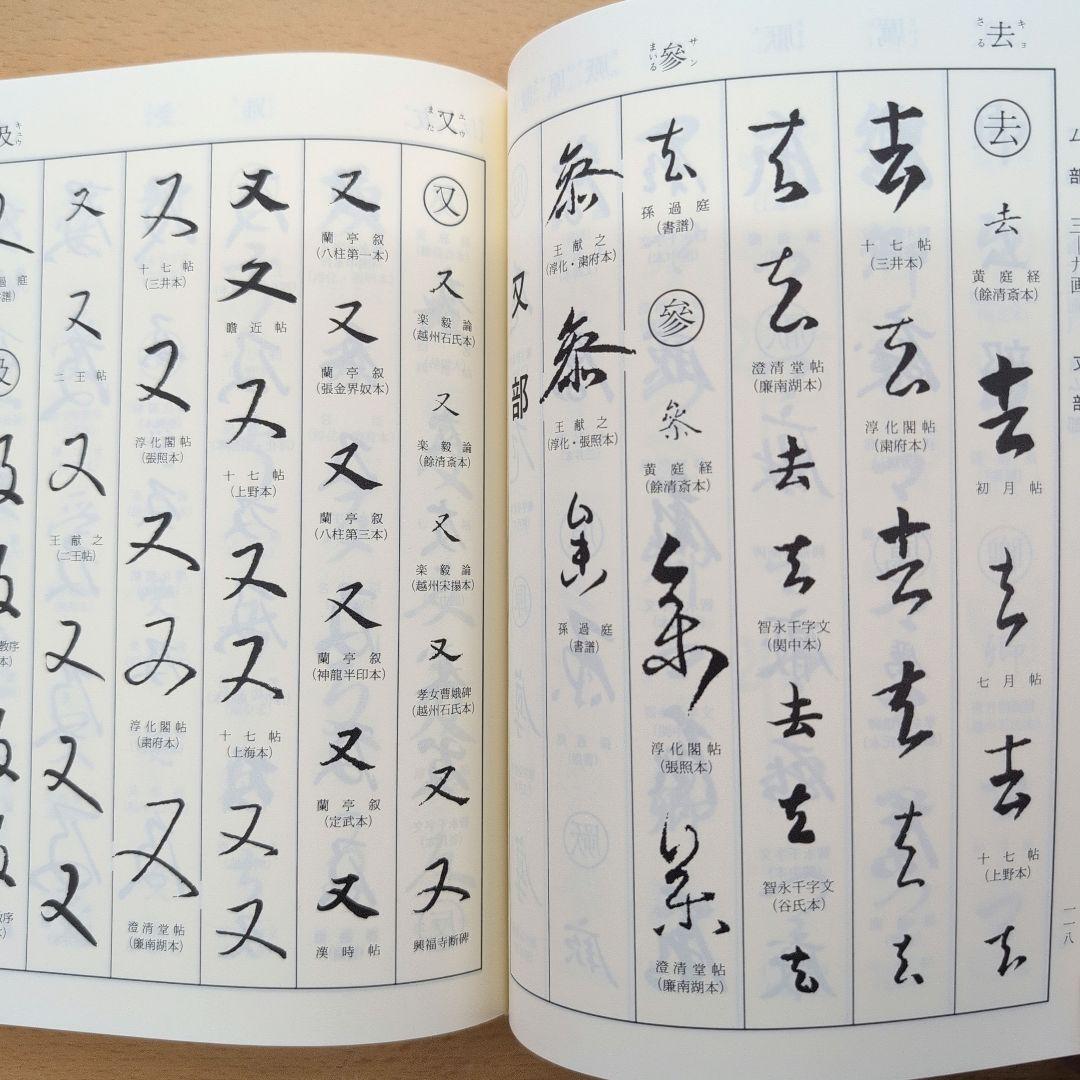 ム部 三―九画 又部
一一八
去
キョ
さる
參
サン
まいる
去
去
黄庭経
(餘清斎本)
去
初月帖
去
七月帖
去
十七帖
(上野本)
去
去
十七帖
(三井本)
去
淳化閣帖
(粛府本)
去
去
去
去
去
去
澄清堂帖
(廉南湖本)
去
去
智永千字文
(関中本)
去
去
智永千字文
(谷氏本)
去
去
孫過庭
(書譜)
參
參
黄庭経
(餘清斎本)
參
淳化閣帖
(張照本)
參
澄清堂帖
(廉南湖本)
參
王献之
(淳化・粛府本)
參
王献之
(淳化・張照本)
參
孫過庭
(書譜)
又部
又
ユウ
また
キュウ
又
又
楽毅論
(越州石氏本)
又
楽毅論
(餘清斎本)
又
楽毅論
(越州宋搨本)
又
孝女曹娥碑
(越州石氏本)
又
又
興福寺断碑
又
蘭亭叙
(八柱第一本)
又
蘭亭叙
(張金界奴本)
又
蘭亭叙
(八柱第三本)
又
蘭亭叙
(神龍半印本)
又
蘭亭叙
(定武本)
又
漢時帖
又
又
瞻近帖
又
十七帖
(上野本)
又
又
十七帖
(上海本)
又
又
又
十七帖
(三井本)
又
淳化閣帖
(張照本)
又
又
淳化閣帖
(粛府本)
又
澄清堂帖
(廉南湖本)
又
又
二王帖
又
王献之
(二王帖)
又
又
又